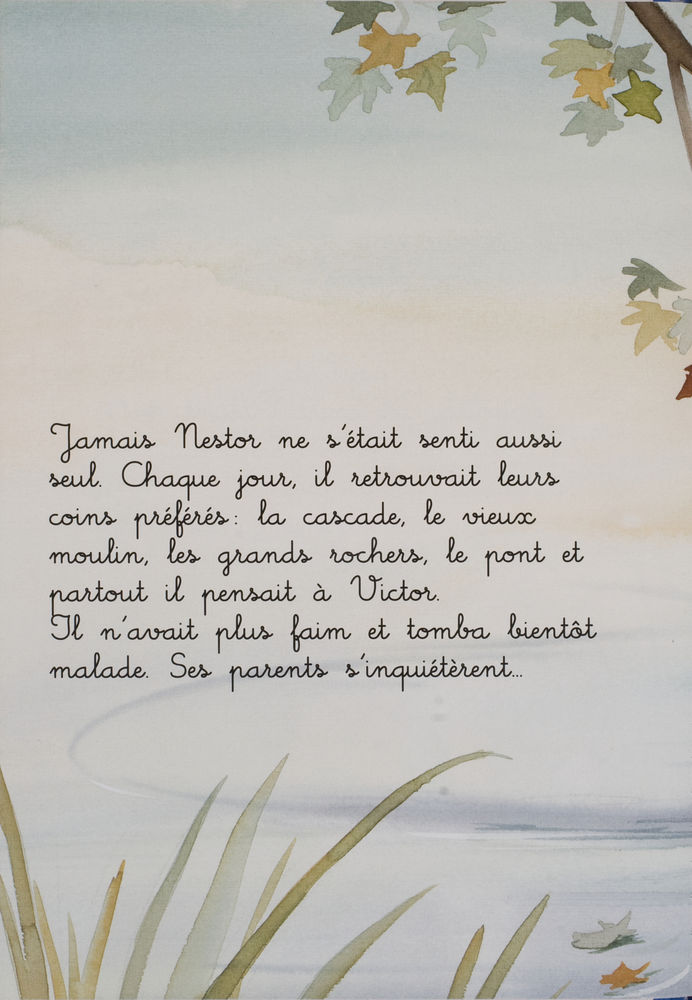 Jamais Nestor ne s'était senti aussi
seul. Chaque jour, il retrouvait leurs
coins préférés : la cascade, le vieux
moulin, les grands rochers, le pont et
partout il pensait à Victor.
Il n'avait plus faim et tomba bientôt
malade. Ses parents s'inquiétèrent...